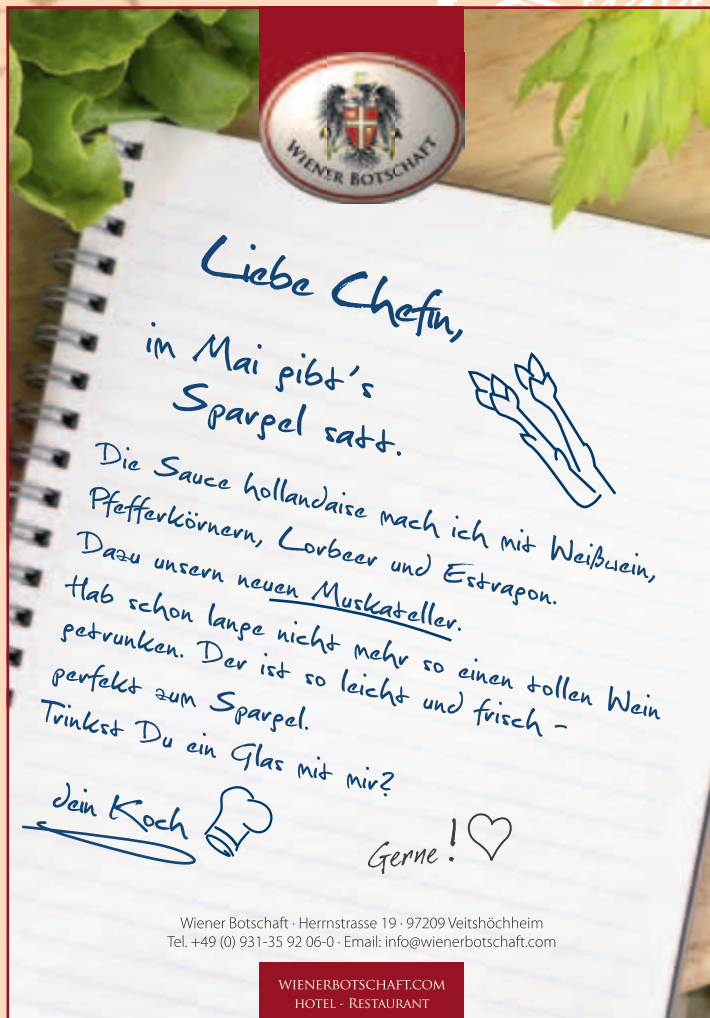 WIENER BOTSCHAFT
Liebe Chefin,
im Mai gibt's
Spargel satt.
Die Sauce hollandaise mach ich mit Weißwein,
Pfefferkörnern, Lorbeer und Estragon.
Dazu unsern neuen Muskateller.
Hab schon lange nicht mehr so einen tollen Wein
getrunken. Der ist so leicht und frisch –
perfekt zum Spargel.
Trinkst Du ein Glas mit mir?
dein Koch
Gerne!
Wiener Botschaft · Herrnstrasse 19 · 97209 Veitshöchheim
Tel. +49 (0) 931-35 92 06-0 · Email: info@wienerbotschaft.com
WIENERBOTSCHAFT.COM
HOTEL - RESTAURANT